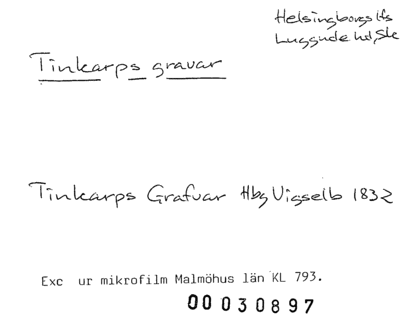 Helsingborgs lfs
Luggude hd, Sk
Tinkarps gravar
Tinkarps Grafvar Hbg Vigselb 1832
Exc ur mikrofilm Malmöhus län KL 793.
00 030897